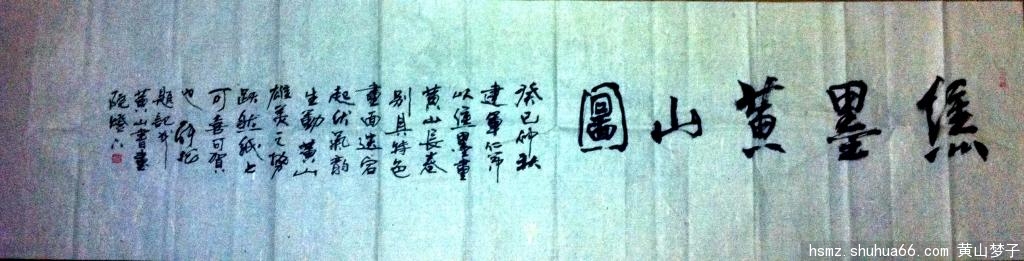 焦墨黄山圖
癸巳仲秋
建軍仁弟
以焦墨畫
黄山長卷
别具特色
畫面
起伏氣韵
生動黄山
雄美之勢
跃然紙上
可喜可賀
也
題記於
黄山書畫
院燈下
hsmz.shuhua66.com 黄山梦子